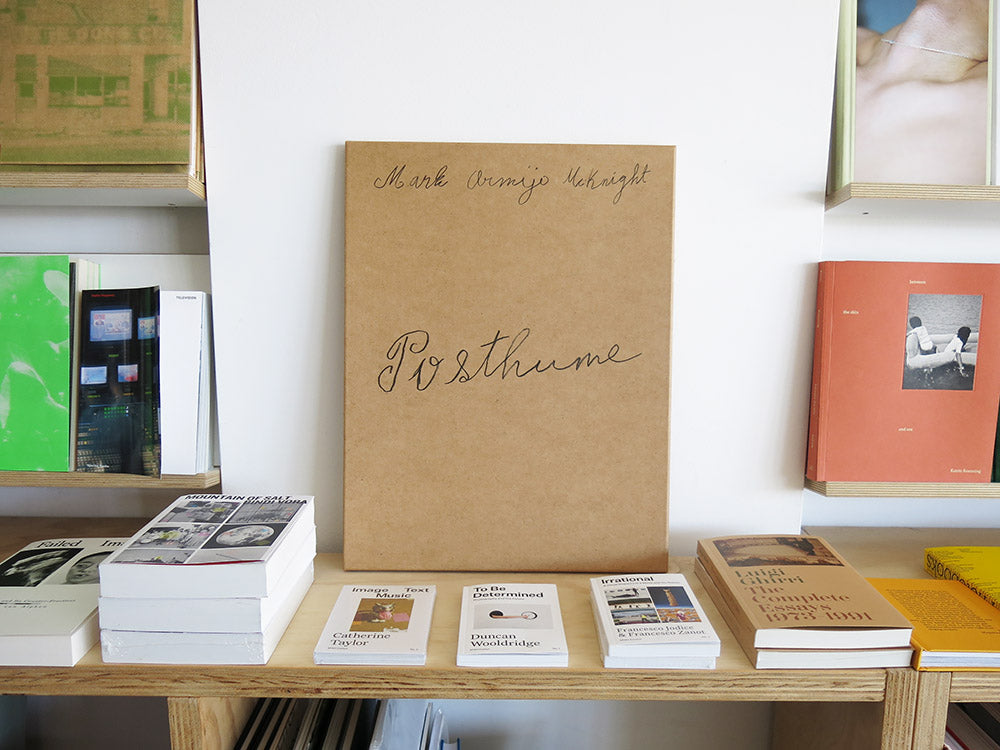 Mark Armijo McKnight
Posthume
TELEVISION
between
the skin
and sea
Katrin Koenning
Failed
MOUNTAIN OF SALT
BINDI VORA
Image Text
Music
Catherine
Taylor
To Be
Determined
Duncan
Wooldridge
Irrational
Francesco Jodice
& Francesco Zanot
Luigi
Ghirri
The
Complete
Essays
1973–1991